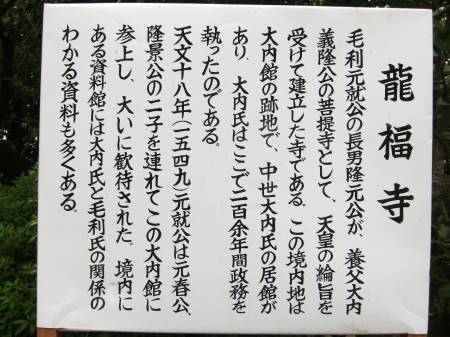 龍福寺
毛利元就公の長男隆元公が、養父大内
義隆公の菩提寺として、天皇の綸旨を
受けて建立した寺である。この境内地は
大内館の跡地で、中世大内氏の居館が
あり、大内氏はここで二百余年間政務を
執ったのである。
天文十八年(一五四九)元就公は元春公、
隆景公の二子を連れてこの大内館に
参上し、大いに歓待された。境内に
ある資料館には大内氏と毛利氏の関係の
わかる資料も多くある。